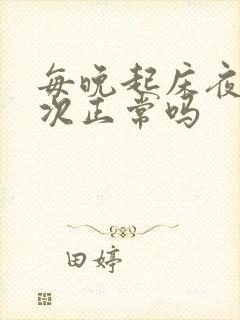 每晚起床夜
次正常吗
田婷